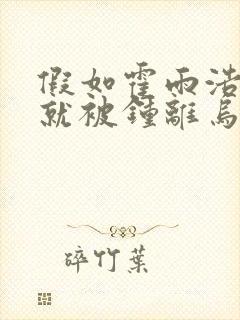 假如霍雨浩
就被鍾離烏
碎竹葉